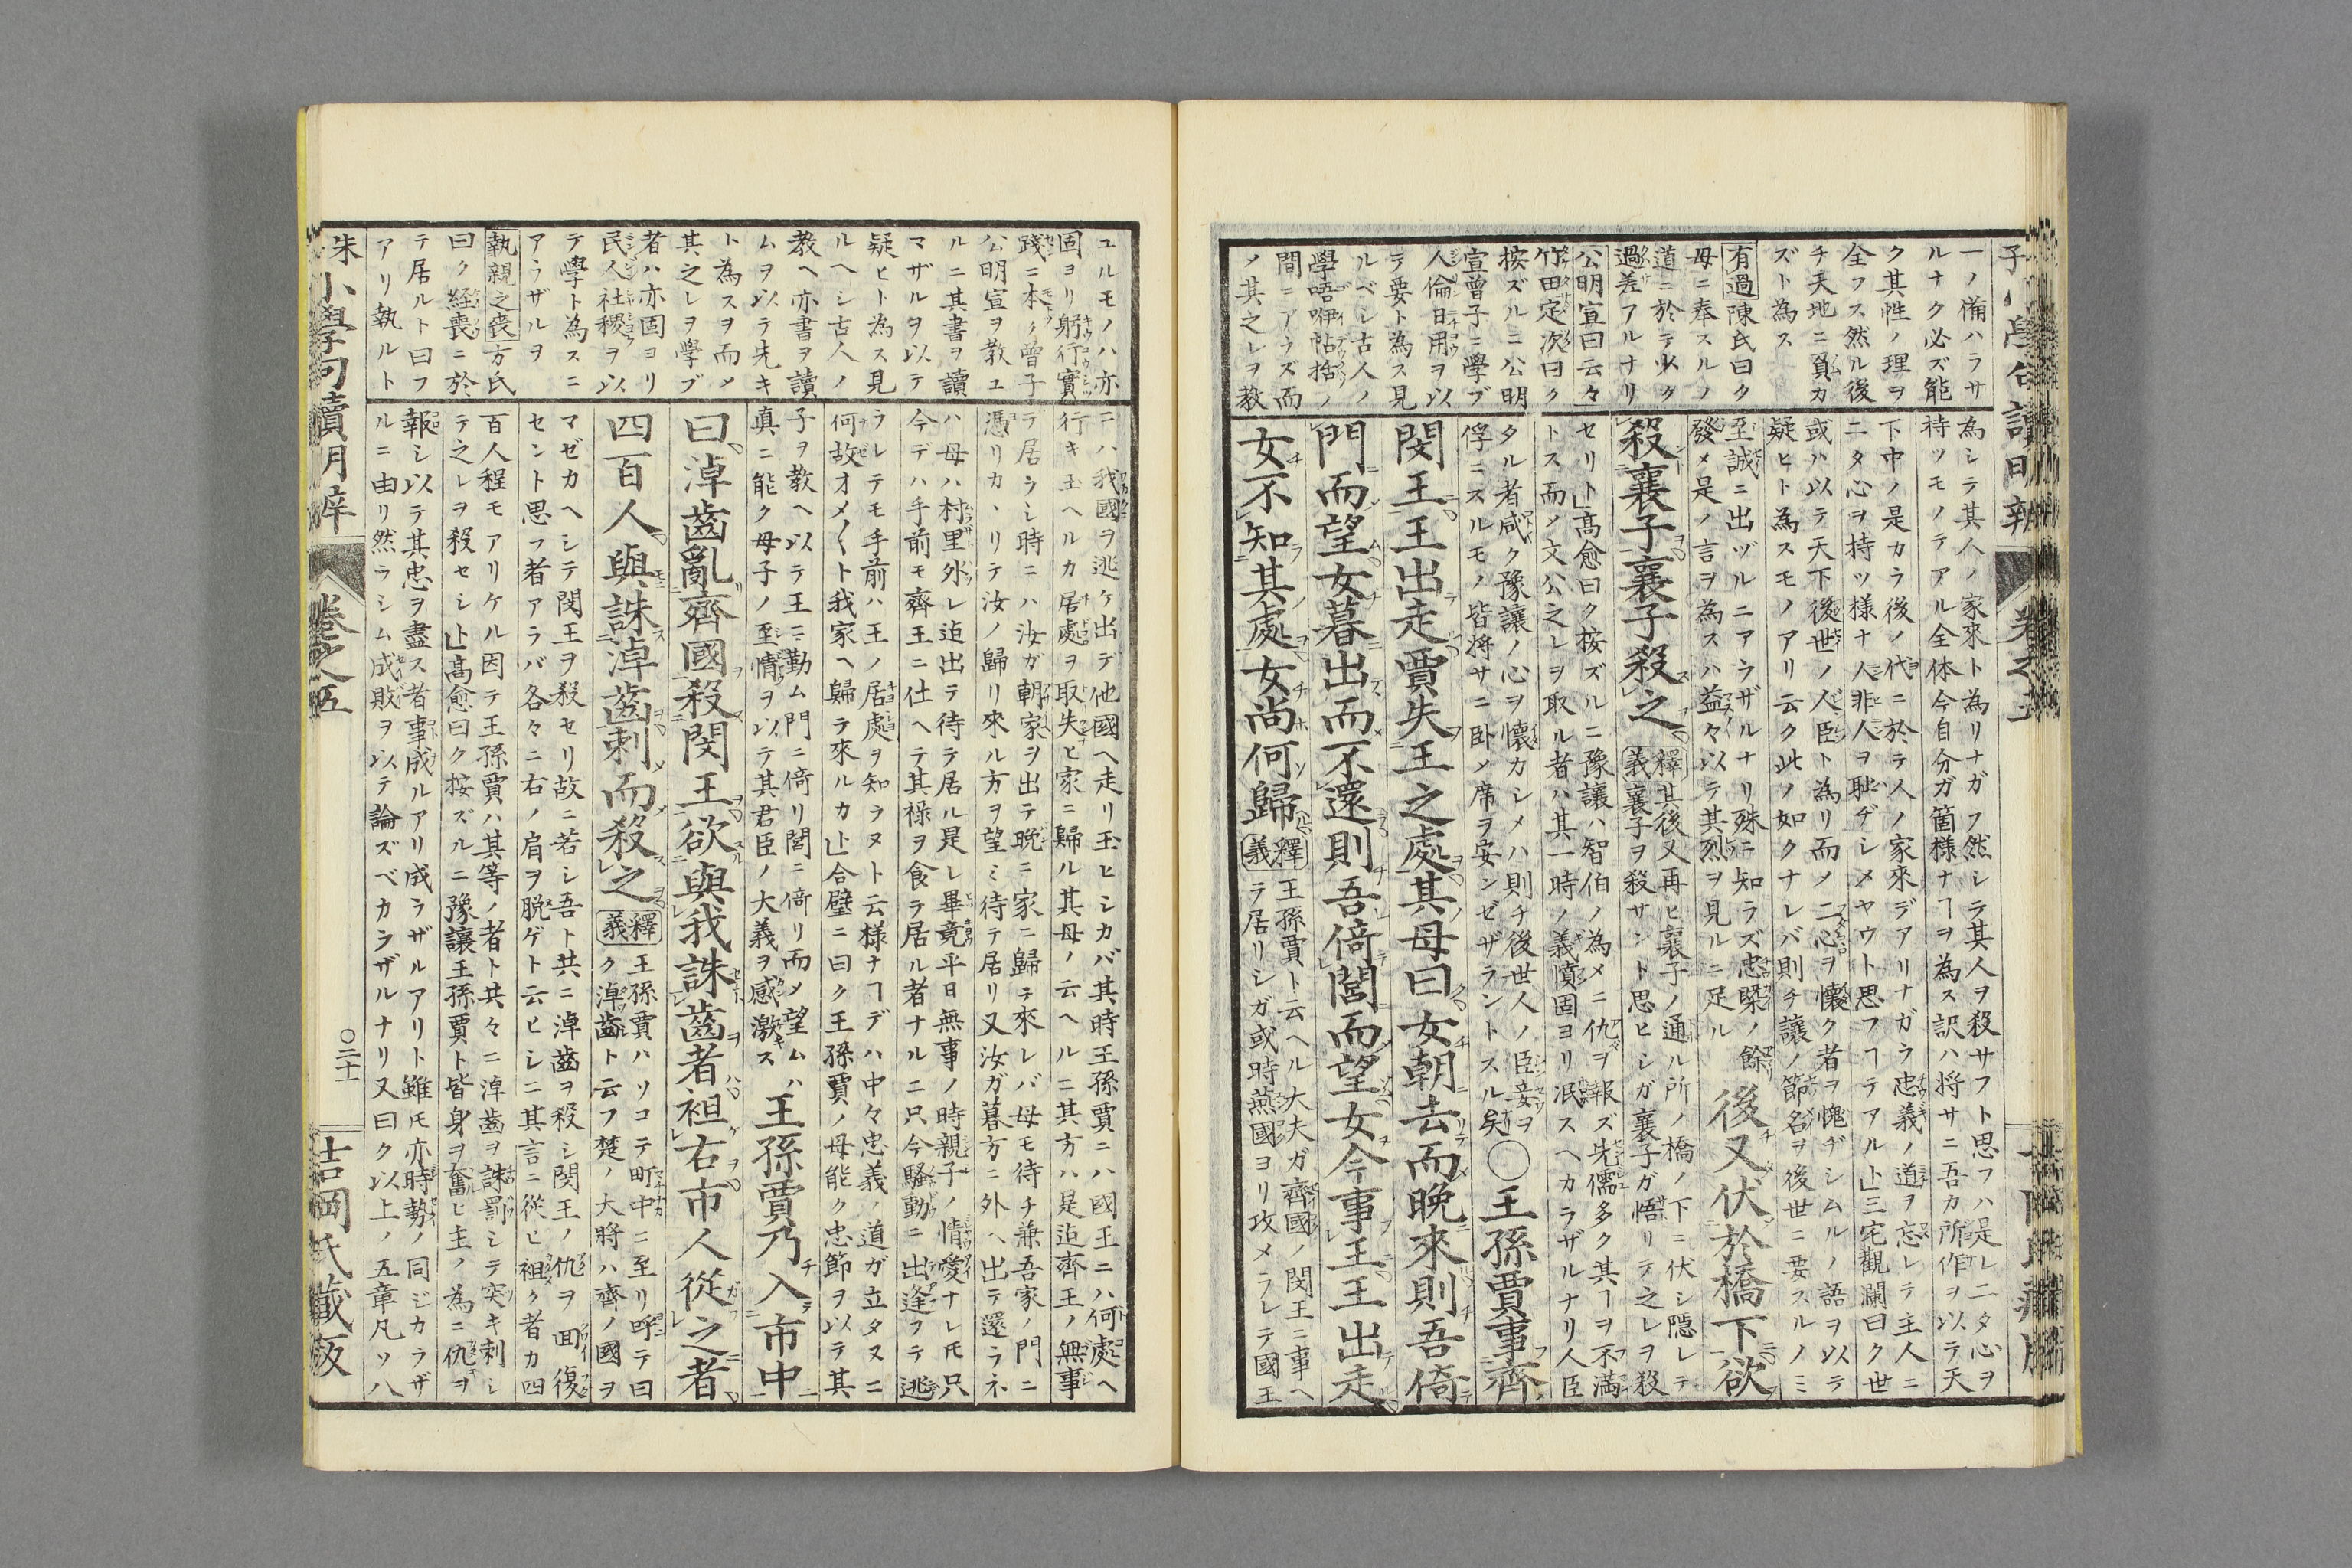 一ノ備ハラサ
ルナク必ズ能
ク其性ノ理ヲ
全フス然ル後
チ天地ニ負カ
ズト為ス
有過陳氏曰ク
母ニ奉スルノ
道ニ於テ少ク
過差アルナリ
公明宣曰云々
竹田定次曰ク
按ズルニ公明
宣曾子ニ學ブ
人倫日用ヲ以
テ要ト為ス見
ルベシ古人ノ
學唔咿帖括ノ
間ニアラズ而
ノ其之レヲ教
為シテ其人ノ家來ト為リナガフ然シラ其人ヲ殺サフト思フハ是ル二タ心ヲ
持ツモノテアル全体今自分ガ箇様ナヿヲ為ス訳ハ将サニ吾カ所作ヲ以ラ天
下中ノ是カラ後ノ代ニ於ラ人ノ家來デアリナガラ忠義ノ道ヲ忘レテ主人ニ
ニタ心ヲ持ツ様ナ人非人ヲ耻ヂシメヤウト思フヿラアル卜」三宅觀瀾曰ク世
或ハ以テ天下後世ノ人臣ト為リ而ノ二心ヲ懐ク者ヲ愧ヂシムルノ語ヲ以テ
疑ヒト為スモノアリ云ク此ノ如クナレバ則チ讓ノ節名ヲ後世ニ要スルノミ
至誠ニ出ヅルニアラザルナリ殊ニ知ラズ忠槩ノ餘
發メ是ノ言ヲ為スハ益々以テ其烈ヲ見ルニ足ル
後又伏於橋下欲
殺襄子襄子殺之
釋義其後又再ヒ襄子ノ通ル所ノ橋ノ下ニ伏シ隠レテ
襄子ヲ殺サント思ヒシガ襄子ガ悟リテ之レヲ殺
セリト」髙愈曰ク按ズルニ豫讓ハ智伯ノ為メニ仇ヲ報ズ先儒多ク其ヿヲ不満
トス而メ文公之レヲ取ル者ハ其一時ノ義憤固ヨリ泯スヘカラザルナリ人臣
タル者咸ク豫讓ノ心ヲ懐カシメハ則チ後世人ノ臣妾ヲ
俘ニスルモノ皆将サニ卧メ席ヲ安ンゼザラントスル矣
○王孫賈事齊
閔王王出走賈失王之處其母曰女朝去而晩來則吾倚
門而望女暮出而不還則吾倚閭而望女今事王王出走
女不知其處女尚何歸
釋義王孫賈ト云ヘル大夫ガ齊國ノ閔王ニ事ヘ
ラ居リシガ或時燕國ヨリ攻メラレテ國王
ユルモノハ亦
固ヨリ躬行實
踐ニ本ク曾子
公明宣ヲ教ユ
ルニ其書ヲ讀
マザルヲ以テ
疑ヒト為ス見
ルヘシ古人ノ
教ヘ亦書ヲ讀
ムヲ以テ先キ
ト為スヲ而メ
其之レヲ學ブ
者ハ亦固ヨリ
民人社稷ヲ以
テ學ト為スニ
アラザルヲ
執親之喪方氏
曰ク経喪ニ於
テ居ルト曰フ
アリ執ルト
ニハ我國ヲ逃ケ出デ他國ヘ走リ玉ヒシカバ其時王孫賈ニハ國王ニハ何處ヘ
行キ玉ヘルカ居處ヲ取失ヒ家ニ歸ル其母ノ云ヘルニ其方ハ是迄齊王ノ無事
ラ居ラシ時ニハ汝ガ朝家ヲ出テ晩ニ家ニ歸テ來レバ母モ待チ兼吾家ノ門ニ
憑リカヽリテ汝ノ歸リ來ル方ヲ望ミ待テ居リ又汝ガ暮方ニ外ヘ出テ還ラネ
ハ母ハ村里外レ迄出テ待ラ居ル是レ畢竟平日無事ノ時親子ノ情愛ナレ𪜈只
今デハ手前モ齊王ニ仕ヘテ其禄ヲ食ラ居ル者ナルニ只今騒動ニ出逢フテ逃
ラレテモ手前ハ王ノ居處ヲ知ラヌト云様ナヿデハ中々忠義ノ道ガ立タヌニ
何故オメ〱ト我家ヘ歸ラ來ルカ卜」合璧ニ曰ク王孫賈ノ母能ク忠節ヲ以テ其
子ヲ教ヘ以テ王ニ勤ム門ニ倚リ閭ニ倚リ而メ望ムハ
真ニ能ク母子ノ至情ヲ以テ其君臣ノ大義ヲ感激ス
王孫賈乃入市中
曰淖齒亂齊國殺閔王欲與我誅齒者袒右市人從之者
四百人與誅淖齒刺而殺之
釋義王孫賈ハソコテ町中ニ至リ呼テ曰
ク淖齒ト云フ楚ノ大將ハ齊ノ國ヲ
マゼカヘシテ閔王ヲ殺セリ故ニ若シ吾ト共ニ淖齒ヲ殺シ閔王ノ仇ヲ囬復
セント思フ者アラバ各々ニ右ノ肩ヲ脱ゲト云ヒシニ其言ニ從ヒ袒ク者カ四
百人程モアリケル因テ王孫賈ハ其等ノ者ト共々ニ淖齒ヲ誅罰シテ突キ刺シ
テ之レヲ殺セシ卜」髙愈曰ク按ズルニ豫讓王孫賈ト皆身ヲ奮ヒ主ノ為ニ仇ヲ
報シ以テ其忠ヲ盡ス者事成ルアリ成ラザルアリト雖𪜈亦時勢ノ同ジカラザ
ルニ由リ然ラシム成敗ヲ以テ論ズベカラザルナリ又曰ク以上ノ五章凡ソ八
朱小學句讀
卷之五
○二十一
吉岡氏藏版